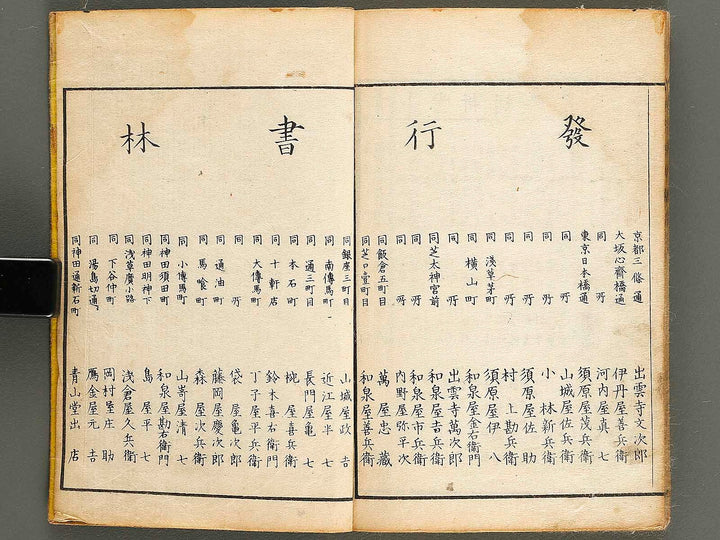 發行書林
京都三條通 出雲寺文次郎
大坂心齋橋通 伊丹屋善兵衛
同所 河内屋真七
東京日本橋通 須原屋茂兵衛
同所 山城屋佐兵衛
同所 小林新兵衛
同所 須原屋佐助
同所 村上勘兵衛
同淺草茅町 須原屋伊八
同横山町 和泉屋金右衛門
同所 出雲寺萬次郎
同芝太神宮前 和泉屋吉兵衛
同所 和泉屋市兵衛
同所 内野屋弥平次
同飯倉五町目 萬屋忠藏
同芝口壹町目 和泉屋善兵衛
同銀座三町目 山城屋政吉
同南傳馬町 近江屋半七
同通三町目 長門屋亀七
同本石町 椀屋喜兵衛
同十軒店 鈴木喜右衛門
同大傳馬町 丁子屋平兵衛
同所 袋屋亀次郎
同通油町 藤岡屋慶次郎
同馬喰町 森屋治兵衛
同小傳馬町 山嵜屋清七
同神田須田町 和泉屋勘右衛門
同神田明神下 島屋平七
同浅草廣小路 浅倉屋久兵衛
同下谷仲町 岡村屋庄助
同湯島切通 鴈金屋元吉
同神田通新石町 青山堂出店